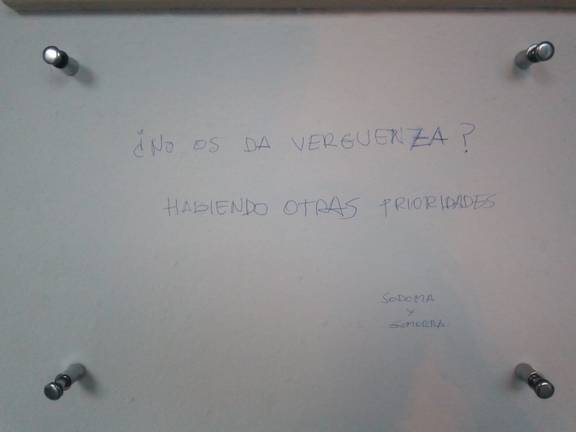 ¿NO OS DA VERGUENZA?
HABIENDO OTRAS PRIORIDADES
SODOMA
Y
GOMORRA